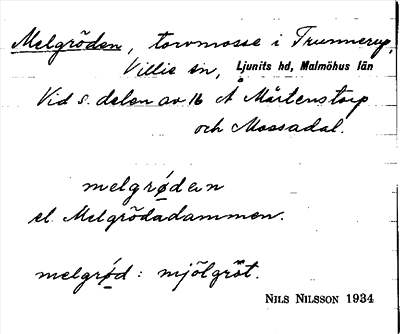 Melgröden, torvmosse i Trunnerup,
Villie sn, Ljunits hd, Malmöhus län
Vid s. delen av 16 Å Mårtenstorp
och Mossadal.
melgrøden
el. Melgrödadammen.
melgrød: mjölgröt.
NILS NILSSON 1934